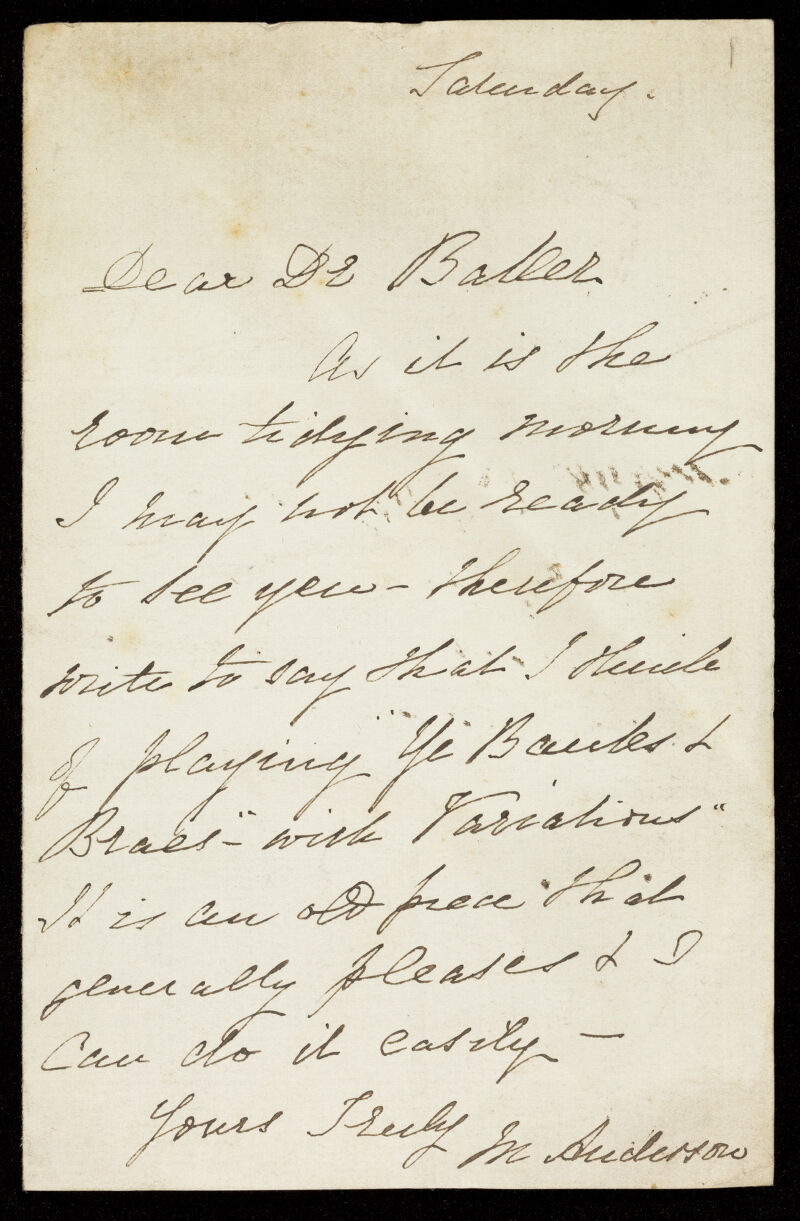 Saturday.
Dear Dr Baller
As it is the
room tidying morning
I may not be ready
to see you - therefore
write to say that I think
of playing "Ye Banks &
Braes" - with Variations"
It is an old piece that
generally pleases & I
can do it easily -
Yours Truly
M Anderson